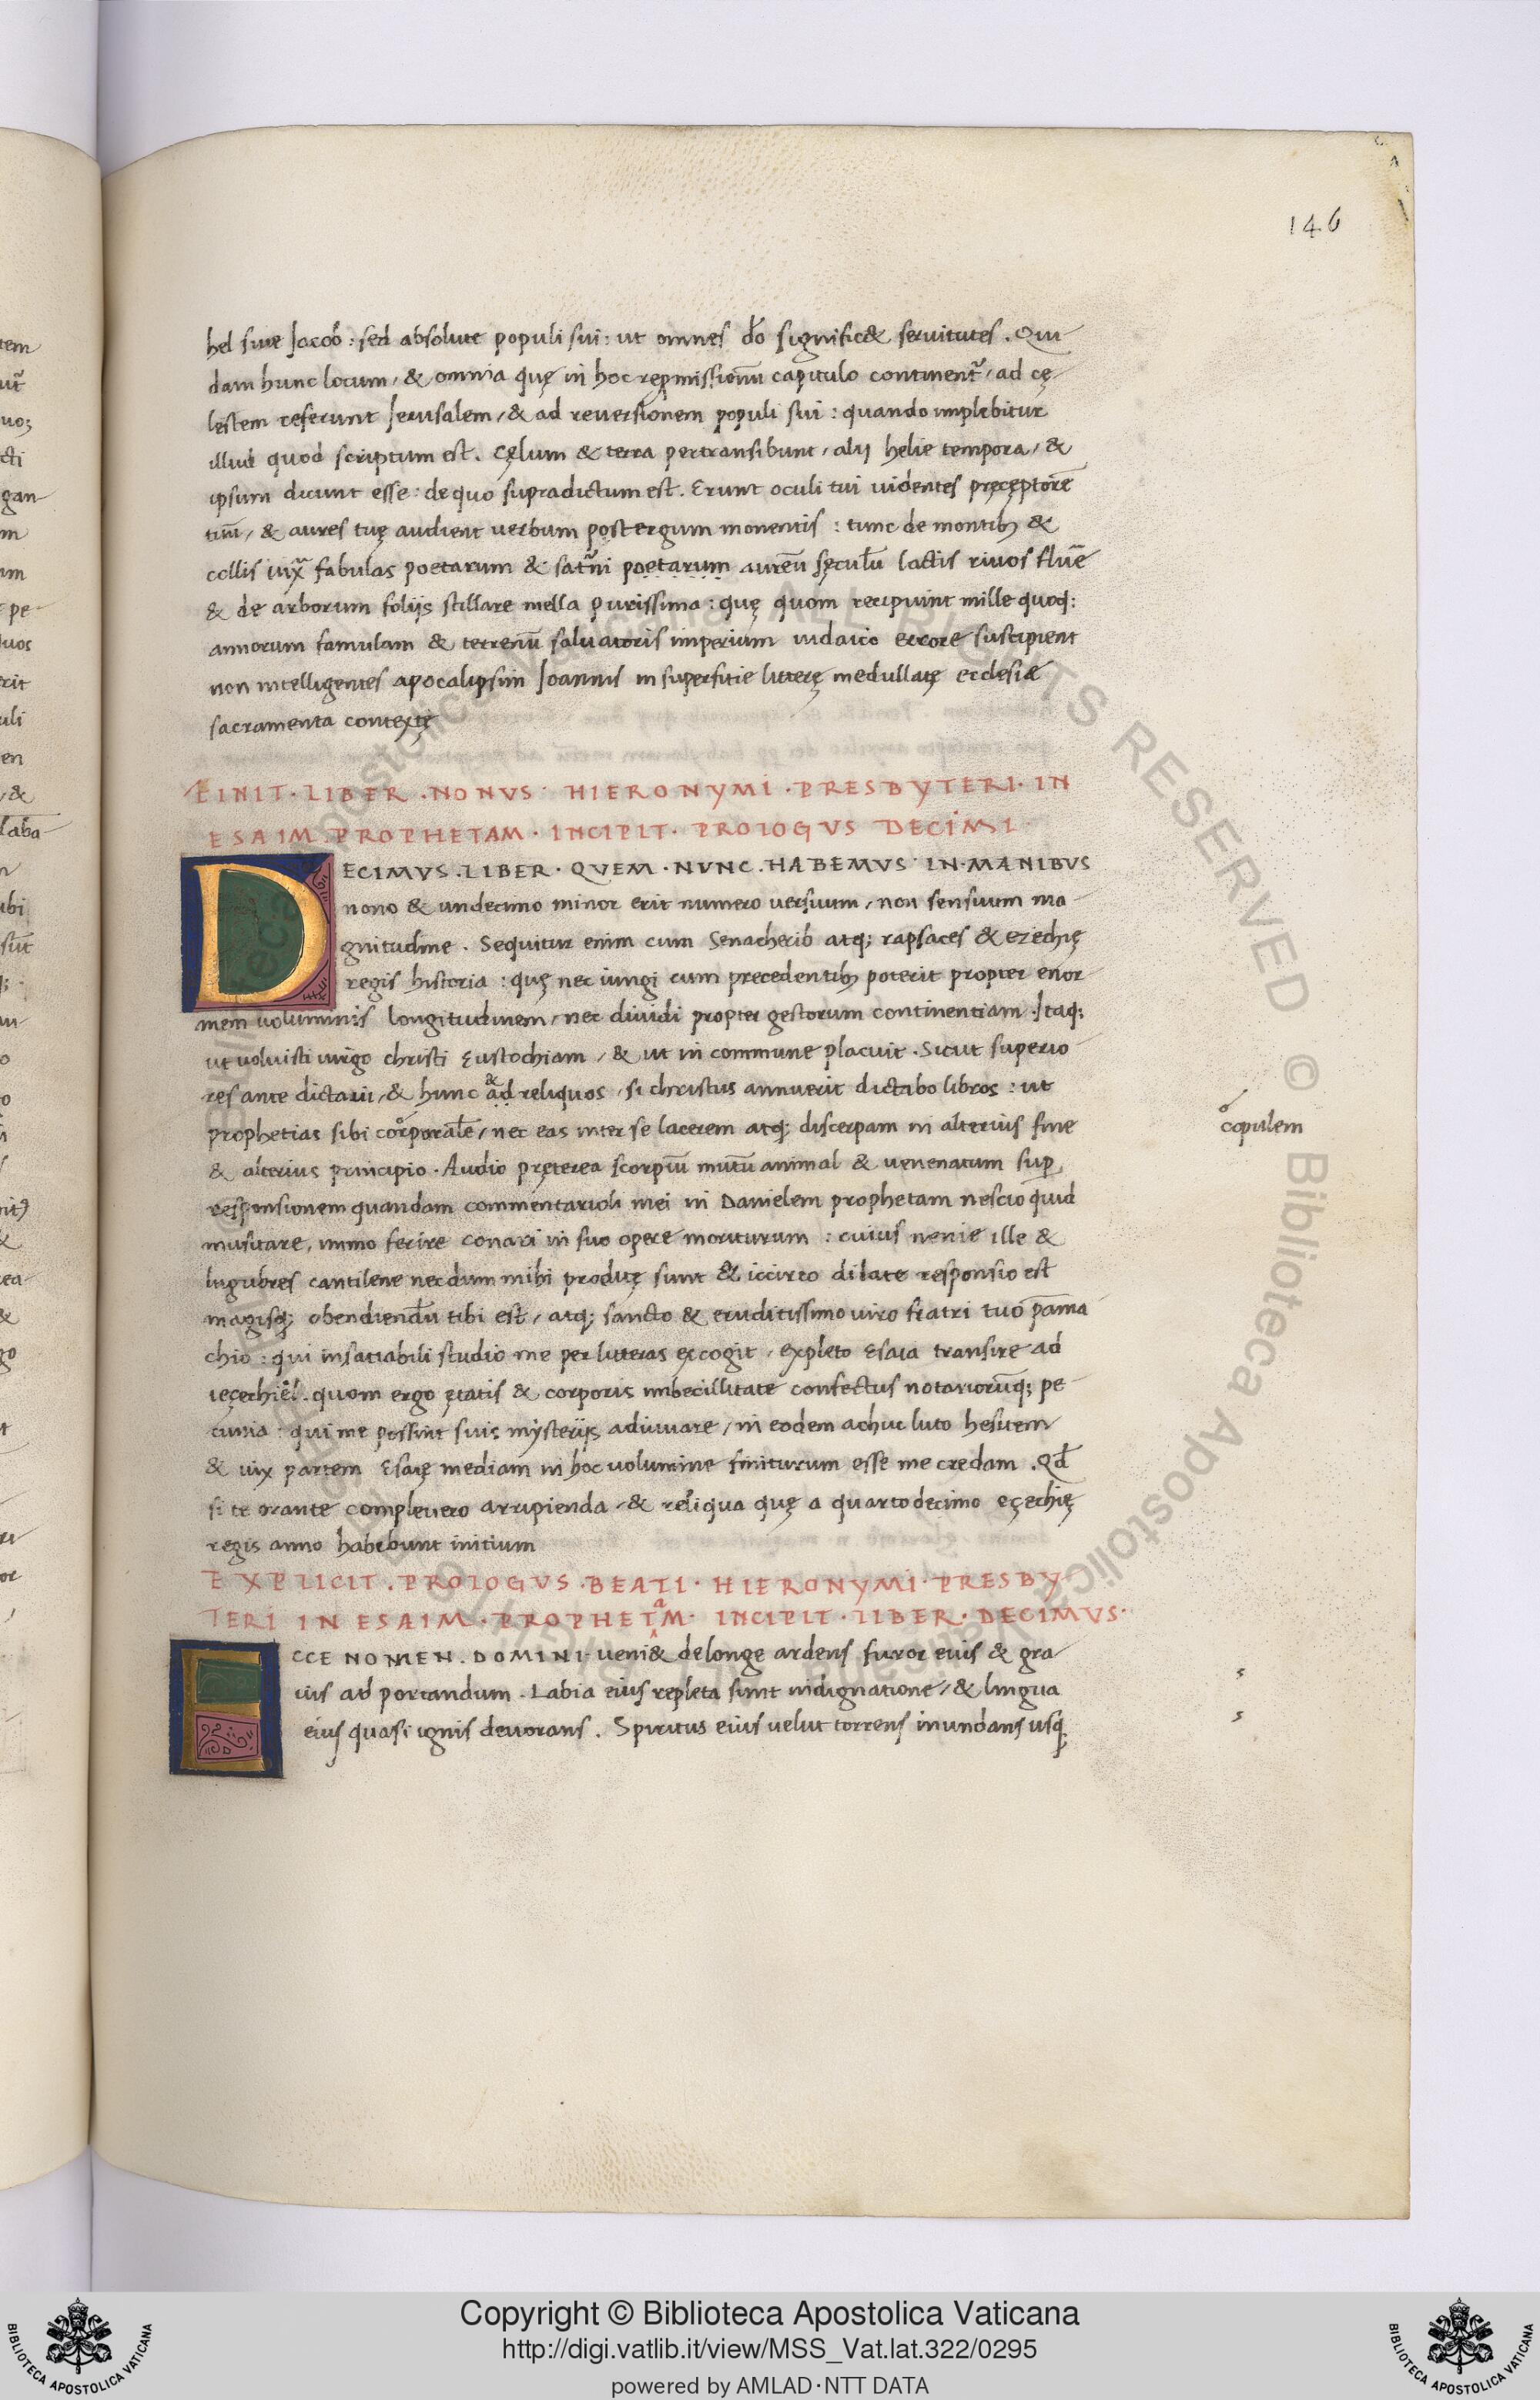 146
hel siue Jacob : sed absolute populi sui : ut omnes do͛ signific& seruitutes . Qui
dam hunc locum , & omnia quę in hoc repmissionũ capitulo continent᷑ , ad cę-
lestem referunt Jerusalem , & ad reuersionem populi sui : quando implebitur
illud quod scriptum est . Cęlum & terra pertransibunt , alij helie tempora , &
ipsum dicunt esse : de quo supradictum est . Erunt oculi tui uidentes pręcęptorē
tuũ , & aures tuę audient uerbum post ergum monentis : tunc de montibꝫ &
collis iuxᷓ fabulas poetarum & sat᷑ni poetarum aureũ sęculũ lactis riuos fluē
& de arborum folijs stillare mella purissima : quę quom recipiunt mille quoq;
annorum famulam & terrenũ saluatoris imperium iudaico errore suscipient
non intelligentes apocalipsim Joannis in superfitie litterę medullatę ecclesiæ
sacramenta contextę
FINIT · LIBER · NONVS · HIERONYMI · PRESBYTERI · IN
ESAIM PROPHETAM · INCIPIT · PROLOGVS DECIMI
DECIMVS · LIBER · QVEM · NVNC · HABEMVS · IN · MANIBVS
nono & undecimo minor erit numero uersuum , non sensuum ma-
gnitudine . Sequitur enim cum Senacherib atq; rapsaces & ezechię
regis historia : quę nec iungi cum precedentibꝫ poterit propter enor-
mem uoluminis longitudinem , nec diuidi propter gestorum continentiam . Jtaq;
ut uoluisti uirgo christi Eustochiam , & ut in commune placuit . Sicut superio-
res ante dictaui , & hunc & ad reliquos , si christus annuerit dictabo libros : ut
prophetias sibi corporale , nec eas inter se lacerem atq; discerpam in alterius fine
copulem
& alterius principio . Audio pręterea scorpiũ mutũ animal & uenenatum sup
responsionem quandam commentarioli mei in Danielem prophetam nescio quid
musitare , immo ferire conari in suo opere moriturum : cuius nenie ille &
lugubres cantilene necdum mihi prodité sunt & iccirco dilate responsio est
magisq; obendiendũ tibi est , atq; sancto & eruditissimo uiro fratri tuo pãma-
chio : qui insatiabili studio me per litteras excogit , expleto Esaia transire ad
ieçechiel̃ . quom ergo ętatis & corporis imbecillitate confectus notariorũq; pe-
cunia : qui me possint suis mysterijs adiuuare , in eodem achuc luto hesitem
& uix partem Esaię mediam in hoc uolumine finiturum esse me credam . Qd̃
si te orante compleuero arripienda , & reliqua quę a quartodecimo eçechię
regis anno habebunt initium
EXPLICIT · PROLOGVS · BEATI · HIERONYMI · PRESBY-
TERI IN ESAIM · PROPHETaM · INCIPIT · LIBER · DECIMVS ·
ECCE NOMEN · DOMINI · ueni& de longe ardens furor eius & gra-
uis ad portandum . Labia eius repleta sunt indignatione , & lingua
eius quasi ignis deuorans . Spiritus eius uelut torrens inundans usq;
Copyright © Biblioteca Apostolica Vaticana
http://digi.vatlib.it/view/MSS_Vat.lat.322/0295
powered by AMLAD·NTT DATA
BIBLIOTECA APOSTOLICA VATICANA
BIBLIOTECA APOSTOLICA VATICANA